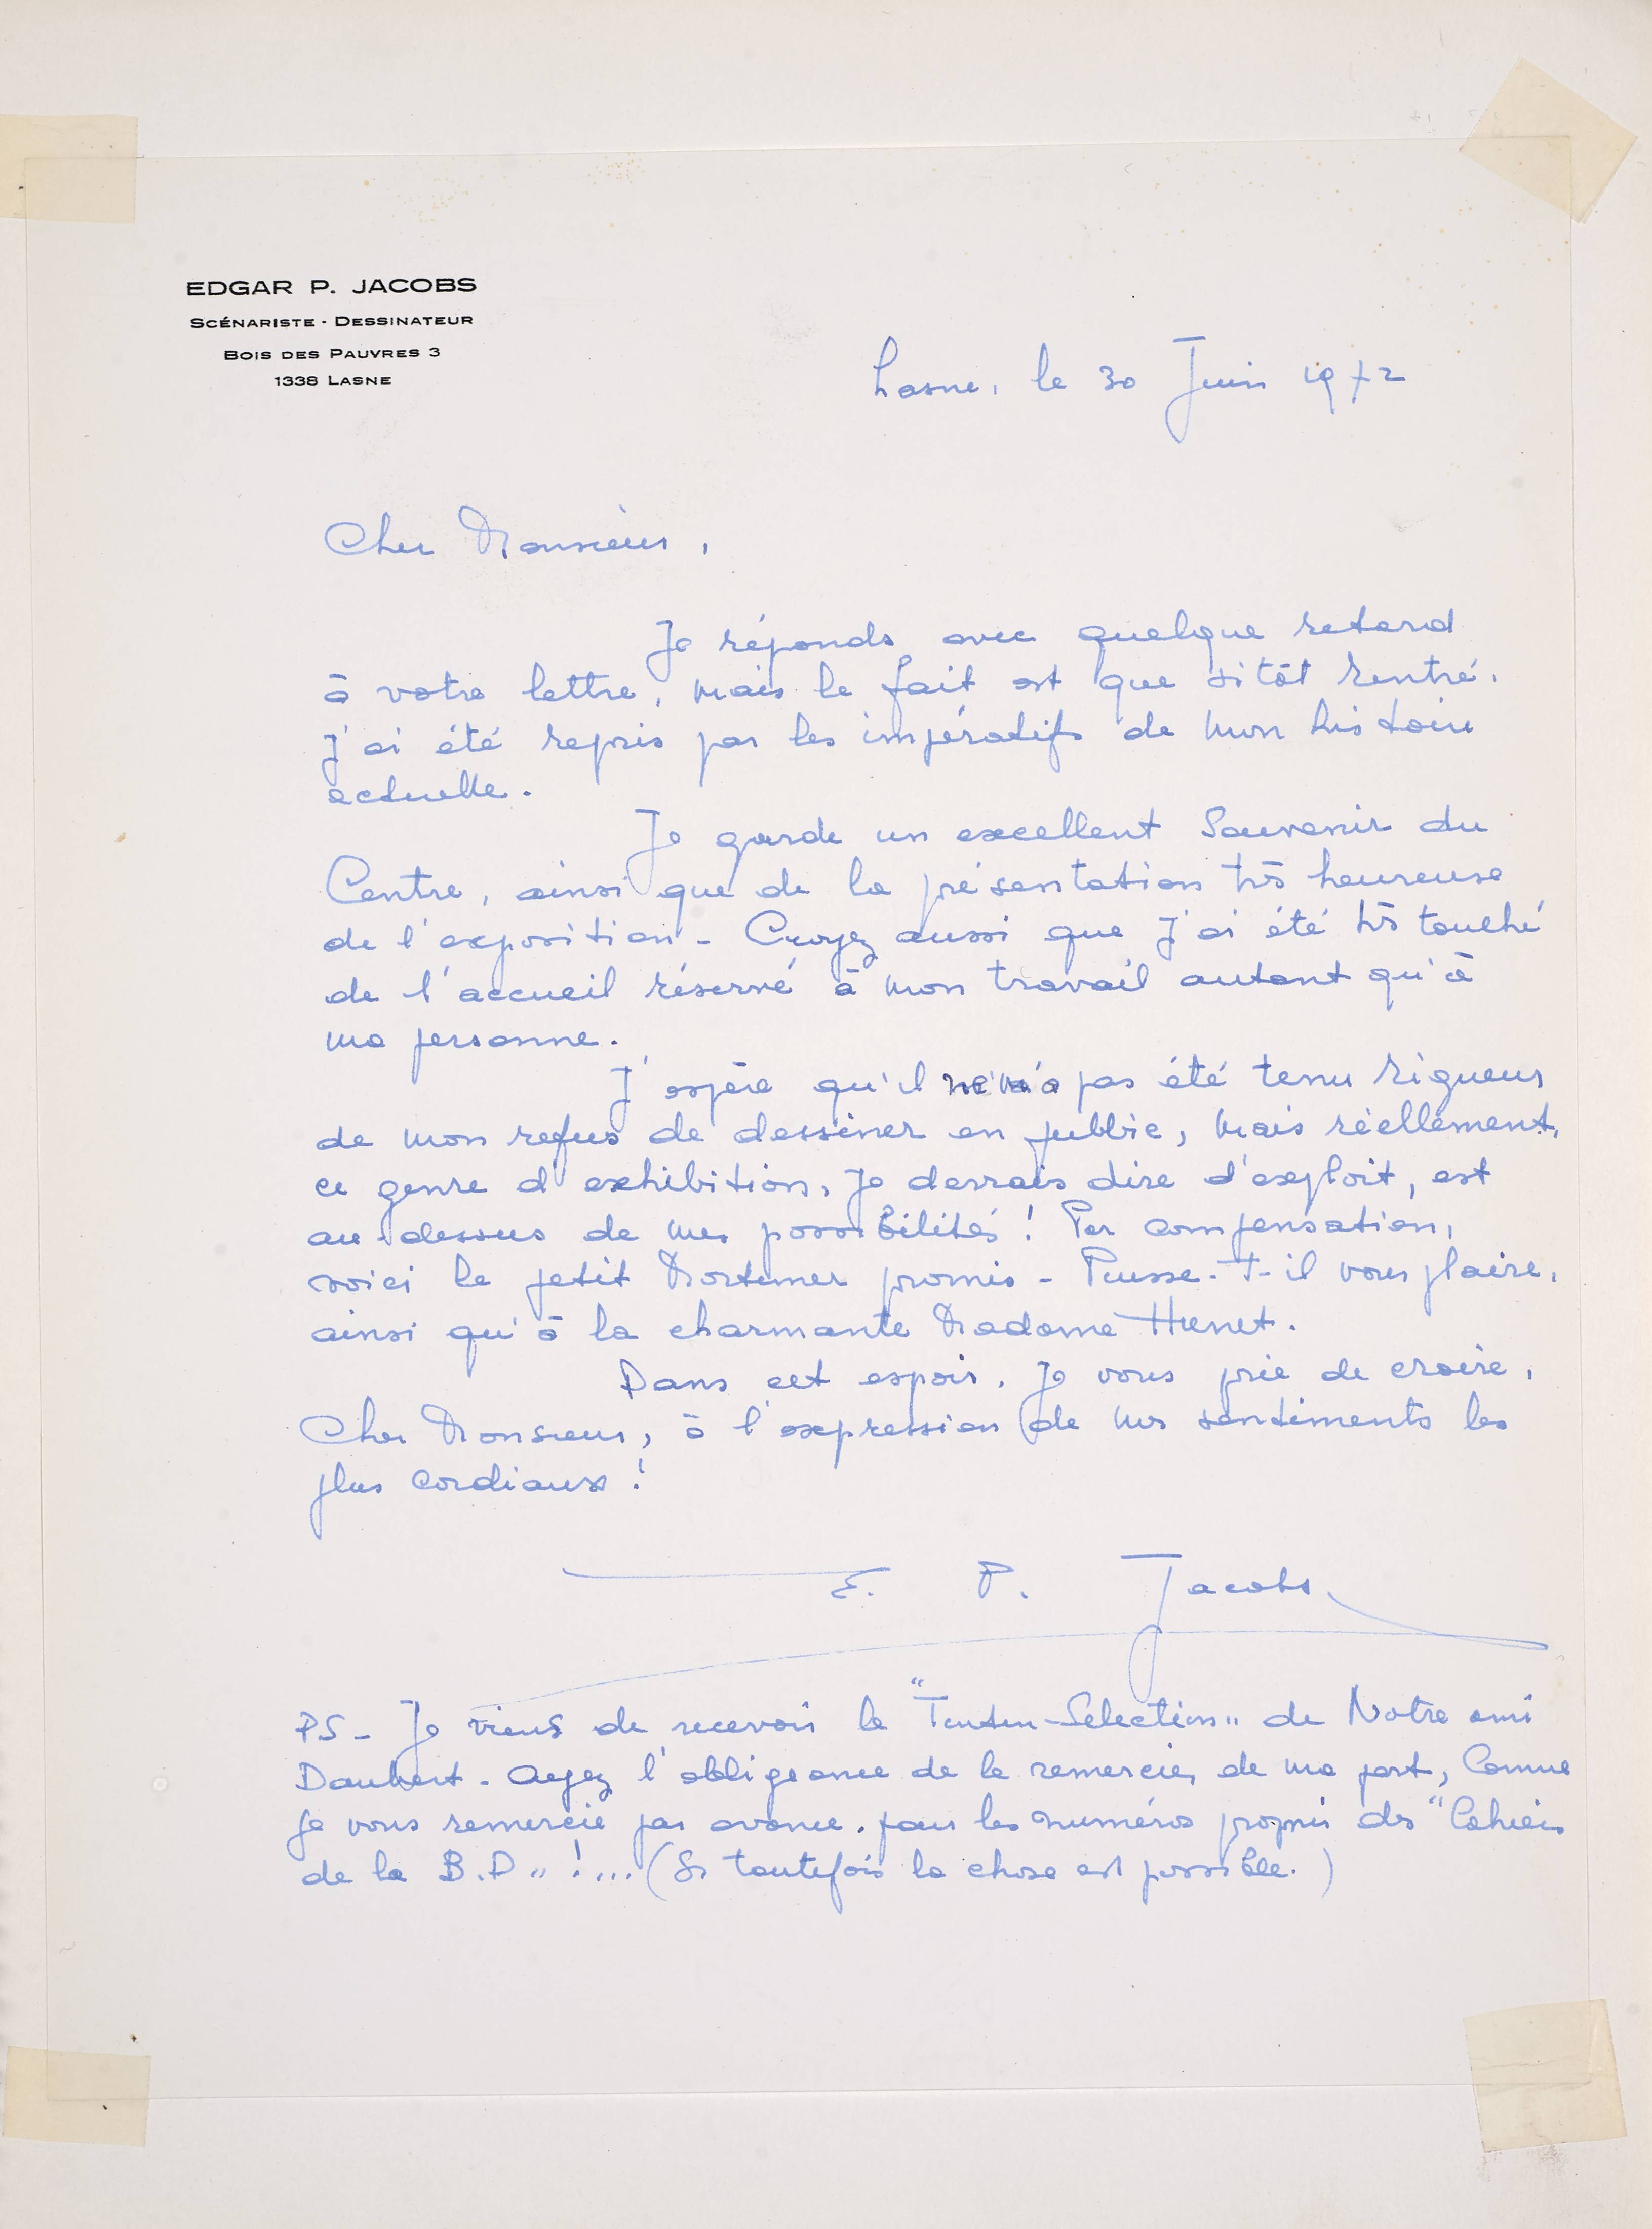 EDGAR P. JACOBS
SCÉNARISTE - DESSINATEUR
BOIS DES PAUVRES 3
1338 LASNE
Lasne, le 30 Juin 1972
Cher Monsieur,
Je réponds avec quelque retard
à votre lettre, mais le fait est que sitôt rentré,
j'ai été repris par les impératifs de mon histoire
actuelle.
Je garde un excellent Souvenir du
Centre, ainsi que de la présentation très heureuse
de l'exposition - Croyez aussi que j'ai été très touché
de l'accueil réservé à mon travail autant qu'à
ma personne.
J'espère qu'il ne m'a pas été tenu rigueur
de mon refus de dessiner en public, mais réellement,
ce genre d'exhibition, je devrais dire d'exploit, est
au dessus de mes possibilités ! Par compensation,
voici le petit Mortimer promis - Puisse-t-il vous plaire,
ainsi qu'à la charmante Madame Hunet.
Dans cet espoir, je vous prie de croire,
Cher Monsieur, à l'expression de mes sentiments les
plus cordiaux !
E. P. Jacobs
PS - Je viens de recevoir le "Tintin-Sélection" de Notre ami
Daubert - Ayez l'obligeance de le remercier de ma part, Comme
je vous remercie par avance, pour les numéros promis des "Cahiers
de la B.D" !... (Si toutefois la chose est possible.)